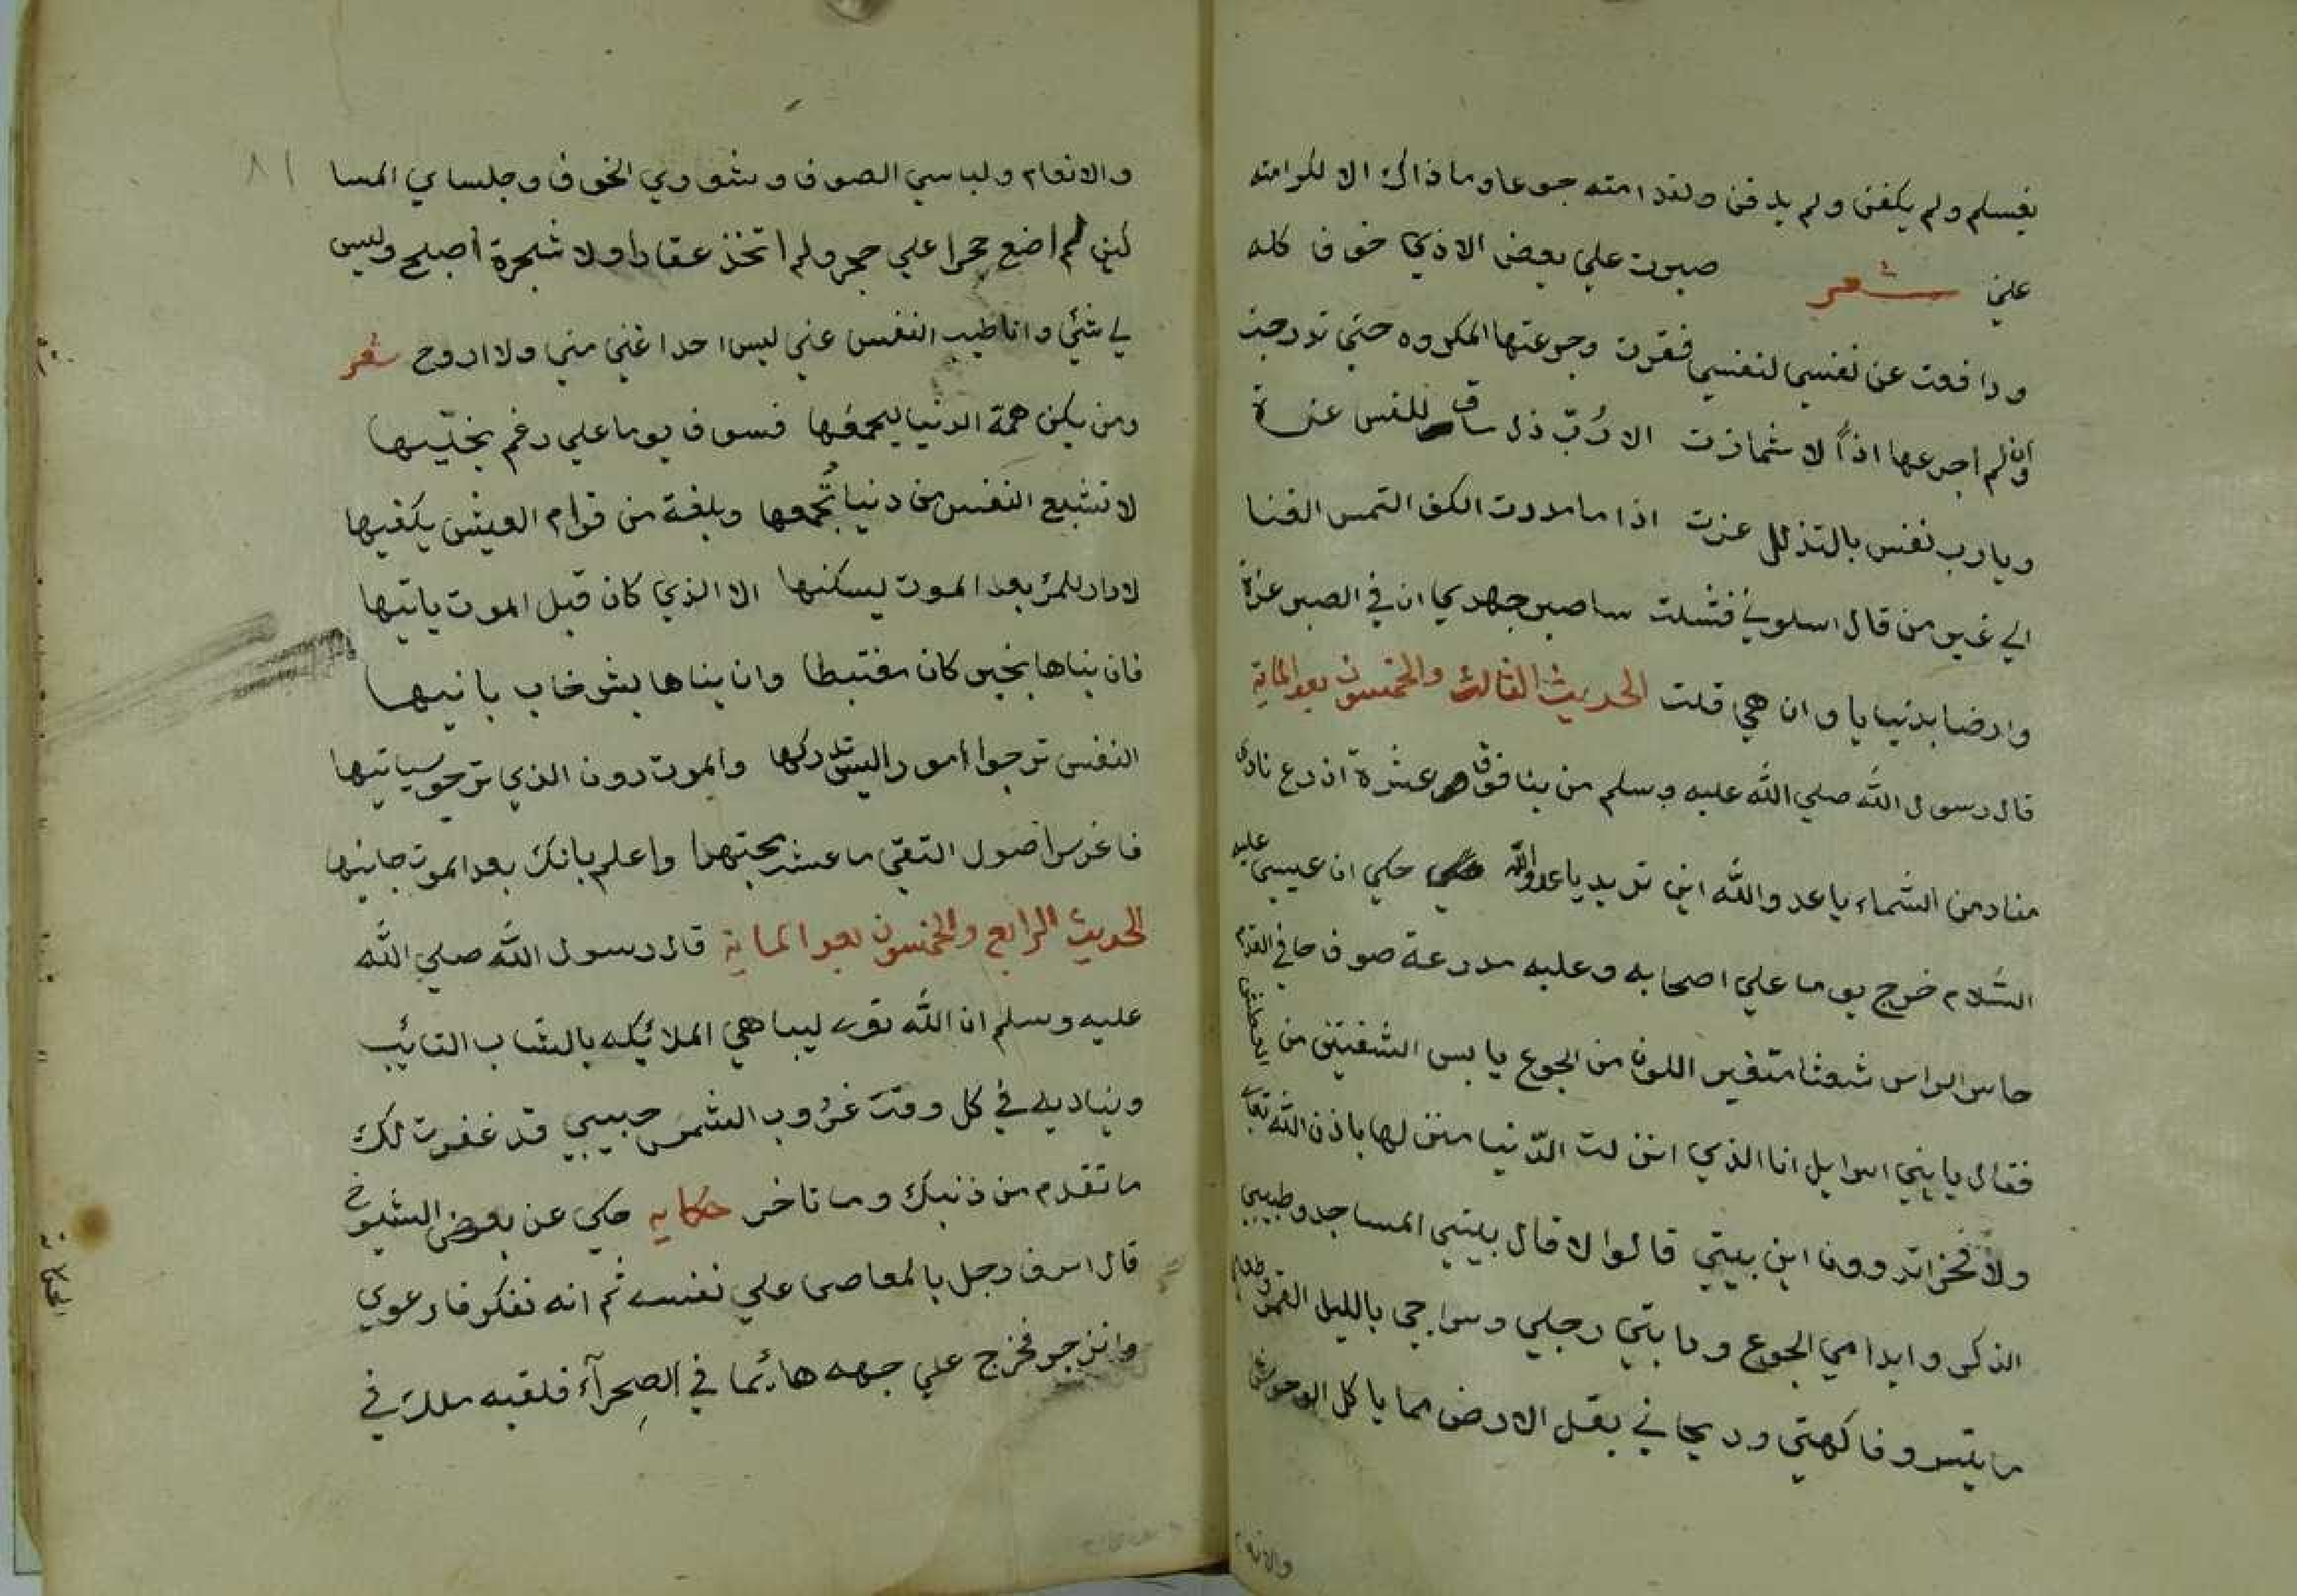 يغسلم ولم يكفن ولم يدفن ولقد امته جوعا وما ذاك الا لكرامته
علي شعر صبرت علي بعض الاذي خوف كله
ودافعت عن نفسي لنفسي فقرت وجرعتها المكروه حتي تدرجت
وان لم اجرعها اذاً لاشمازت الا رُبّ ذل ساق للنفس عزة
ويارب نفس بالتذلل عزت اذا ما مددت الكف التمس الغنا
الي غير من قال اسلوني فشلت ساصبر جهدي ان في الصبر عزة
وارضا بدنيايا وان هي قلت الحديث الثالث والخمسون بعد الماية
قال رسول الله صلي الله عليه وسلم من بنا فوق عشرة اذرع ناداه
مناد من السماء يا عدو الله اين تريد يا عدو الله حكي ان عيسي عليه
السلام خرج يوما علي اصحابه وعليه مدرعة صوف حافي القدم
حاسر الراس شعثا متغير اللون من الجوع يابس الشفتين من العطش
فقال يا بني اسرايل انا الذي انزلت الدّنيا منزلها باذن الله تعالي
ولا فخر اتدرون اين بيتي قالوا لا قال بيتي المساجد وطيبي
الذكر وادامي الجوع ودابتي رجلي وسراجي بالليل القمر وطعامي
ما يتسر وفاكهتي وريحاني بقل الارض مما ياكل الوحوش
والانعام
٨١
والانعام ولباسي الصوف وشعوري الخوف وجلساي المسا
كين لم اضع حجرا علي حجر ولم اتخذ عقارا ولا شجرة اصبح وليس
لي شئ وانا طيب النفس عني ليس احد اغني مني ولا اروح شعر
ومن يكن همة الدنيا ليجمعها فسوف يوما علي رغم يخليها
لا تشبع النفس من دنيا تُجمعها وبلغة من قوام العيش يكفيها
لا دار للمرٔ بعد الموت ليسكنها الا الذي كان قبل الموت ياتيها
فان بناها بخير كان مغتبطا وان بناها بشر خاب بانيها
النفس ترجوا امور اليس تدركها والموت دون الذي ترجو سياتيها
فاغرس اصول التقي ما عشت مجتهدا واعلم بانك بعد الموت جانيها
الحديث الرابع والخمسون بعد الماية قال رسول الله صلي الله
عليه وسلم ان الله تعالي ليباهي الملائكه بالشاب التائب
ويناديه في كل وقت غروب الشمس حبيبي قد غفرت لك
ما تقدم من ذنبك وما تاخر حكايه حكي عن بعض الشيوخ
قال اسرف رجل بالمعاصي علي نفسه ثم انه تفكر فارعوي
وانزجر فخرج علي جهه هائما في الصحرآء فلقيه ملك في